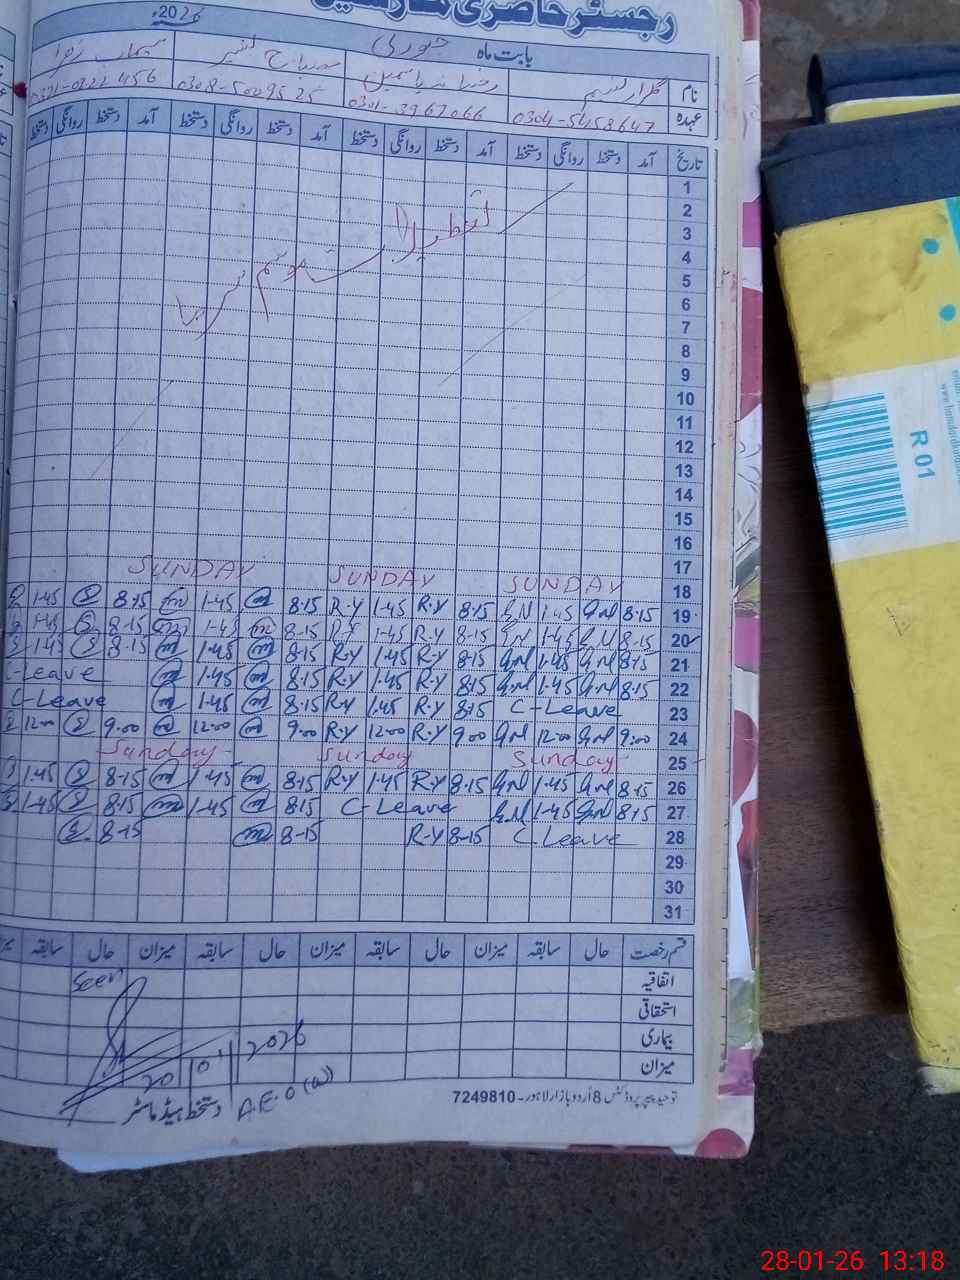 رجسٹر حاضری ملازمین
بابت ماہ جنوری 2026ء
نام گلزار نسیم رضیانہ یاسمین مصباح نسیم سیماب زہرا
عہدہ 0304-5458647 0301-3967066 0308-5009525 0321-0222456
تاریخ آمد دستخط روانگی دستخط آمد دستخط روانگی دستخط آمد دستخط روانگی دستخط آمد دستخط روانگی دستخط
1
2
3
4
5
6
7
8
9
10
11
12
13
14
15
16
17
تعطیلات موسم سرما
18 SUNDAY SUNDAY SUNDAY
19 8·15 G.N 1·45 G.N 8·15 R.Y 1·45 R.Y 8·15 m 1·45 m 8·15 S 1·45 S
20 8-15 G.N 1·45 G.N 8-15 R.Y 1·45 R.Y 8-15 m 1·45 m 8-15 S 1·45 S
21 8·15 G.N 1·45 G.N 8·15 R.Y 1·45 R.Y 8·15 m 1·45 m 8·15 S 1·45 S
22 8·15 G.N 1·45 G.N 8·15 R.Y 1·45 R.Y 8·15 m 1·45 m C-Leave
23 C-Leave 8·15 R.Y 1·45 R.Y 8·15 m 1·45 m C-Leave
24 9:00 G.N 12:00 G.N 9:00 R.Y 12:00 R.Y 9:00 m 12:00 m 9:00 S 12:00 S
25 Sunday Sunday Sunday
26 8·15 G.N 1·45 G.N 8·15 R.Y 1·45 R.Y 8·15 m 1·45 m 8·15 S 1·45 S
27 8·15 G.N 1·45 G.N C-Leave 8·15 m 1·45 m 8·15 S 1·45 S
28 C-Leave 8-15 R.Y 8-15 m 8-15 S
29
30
31
قسم رخصت حال سابقہ میزان حال سابقہ میزان حال سابقہ میزان حال سابقہ میزان
اتفاقیہ
استحقاقی
بیماری
میزان
Seen
20/01/2026
دستخط ہیڈ ماسٹر A.E.O (W)
توحید پیپر پروڈکٹس 8 اُردو بازار لاہور - 7249810
R 01
28-01-26 13:18